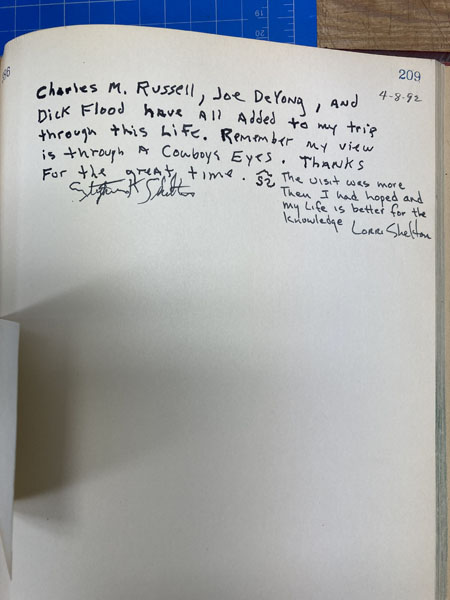 209
4-8-92
Charles M. Russell, Joe DeYong, And
Dick Flood have All Added to my trip
through this Life. Remember my view
is through A Cowboys Eyes. Thanks
For the great time.
Stephen Shelton
The visit was more
Then I had hoped and
my Life is better for the
knowledge Lorri Shelton